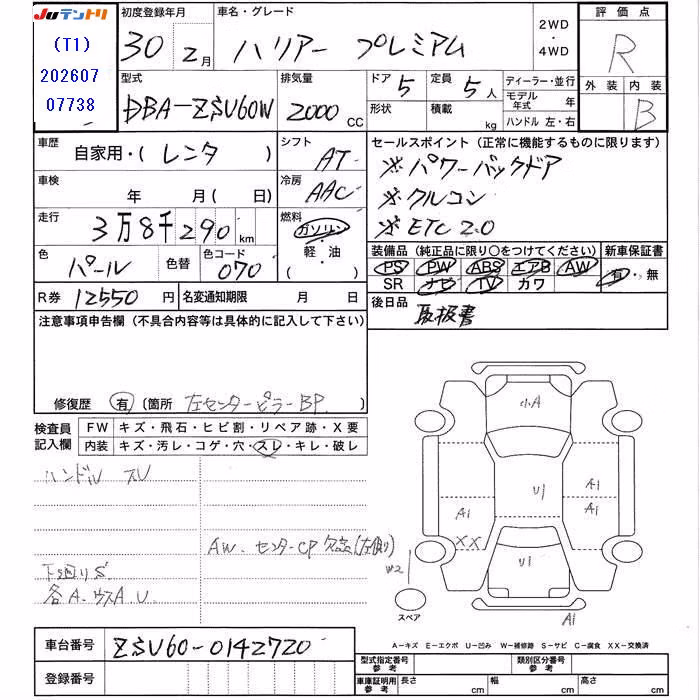 JUテントリ
(T1)
202607
07738
初度登録年月
30 2月
車名・グレード
ハリアー プレミアム
2WD
・
4WD
評価点
R
外装 内装
B
型式
DBA-ZSU60W
排気量
2000 CC
ドア 5
形状
定員 5人
積載 kg
ディーラー・並行
モデル年式 年
ハンドル 左・右
車歴
自家用・(レンタ)
シフト
AT
車検 年 月(日)
冷房
AAC
走行
3万8千290km
燃料
ガソリン
軽・油
( )
色
パール
色替
色コード
070
R券 12550円
名変通知期限 月 日
セールスポイント(正常に機能するものに限ります)
※パワーバックドア
※クルコン
※ETC 2.0
装備品(純正品に限り〇をつけてください)
PS PW ABS エアB AW
SR ナビ TV カワ
新車保証書
有・無
後日品
取扱書
注意事項申告欄(不具合内容等は具体的に記入して下さい)
修復歴 有 〔箇所 左センターピラーBP 〕
検査員
記入欄
FW キズ・飛石・ヒビ割・リペア跡・X要
内装 キズ・汚レ・コゲ・穴・スレ・キレ・破レ
ハンドル スレ
AW.センターCP欠品(左側)
下廻りS
各A.ウスA.U
小A
U1
A1
A1
A1
XX
U1
W2
A1
スペア
A-キズ E-エクボ U-凹み W-補修跡 S-サビ C-腐食 XX-交換済
車台番号 ZSU60-0142720
登録番号
型式指定番号
参考
類別区分番号
参考
車庫証明用
参考
長さ cm
幅 cm
高さ cm